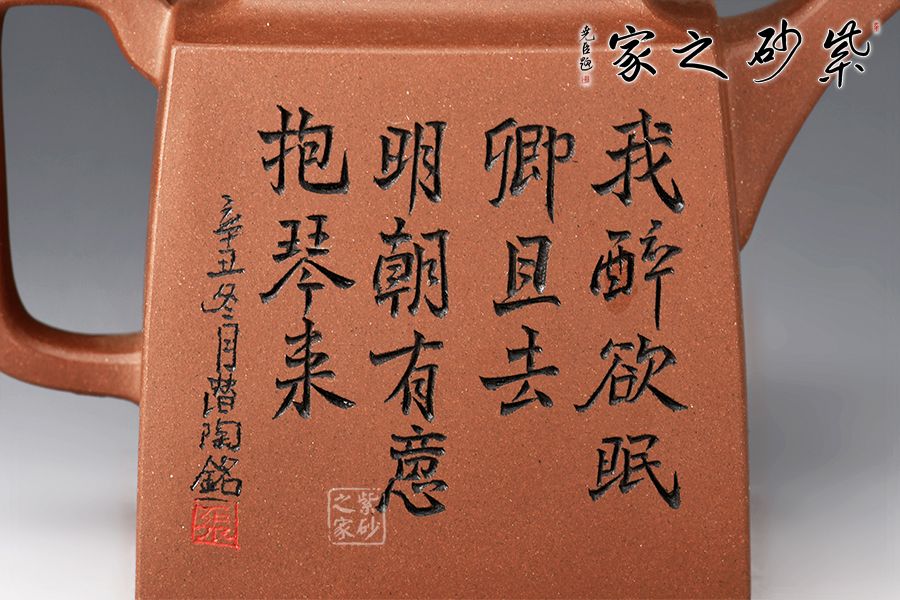 紫砂之家
尧臣题
我醉欲眠
卿且去
明朝有意
抱琴来
辛丑冬月潛陶銘
紫砂之家